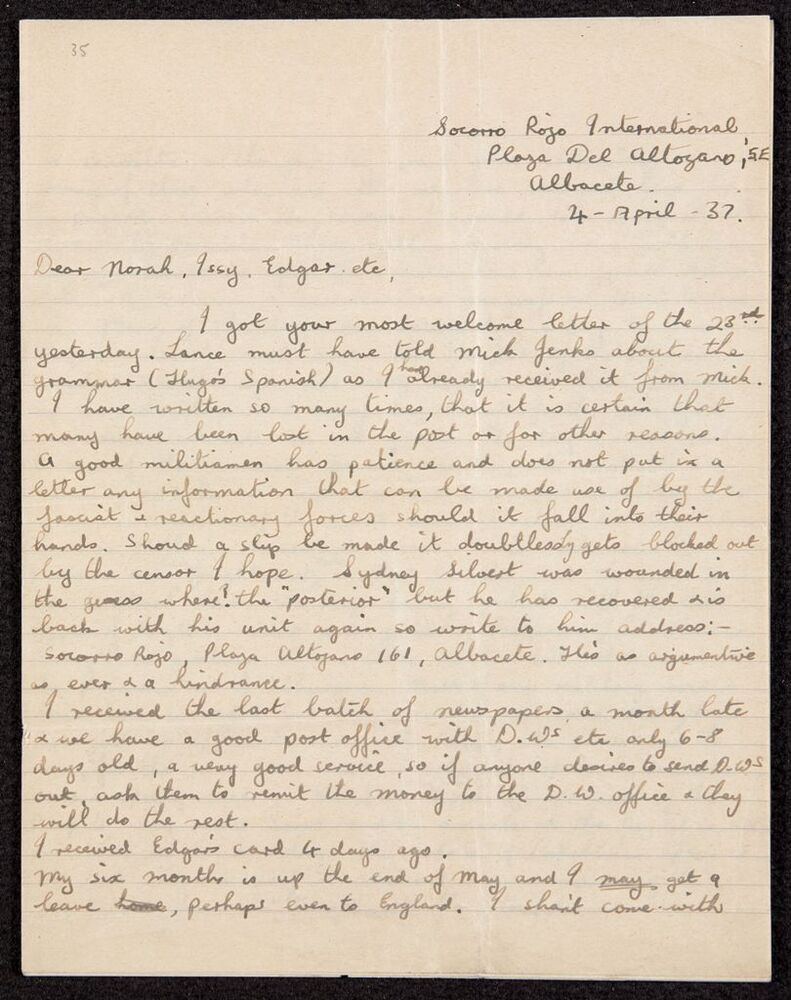 35
Socorro Rojo International,
Plaza Del Altozano, S.E
Albacete.
4 - April - 37.
Dear Norah, Issy, Edgar etc,
I got your most welcome letter of the 23rd
yesterday. Lance must have told Mick Jenks about the
grammar (Hugo's Spanish) as I had already received it from Mick.
I have written so many times, that it is certain that
many have been lost in the post or for other reasons.
A good militiamen has patience and does not put in a
letter any information that can be made use of by the
fascist & reactionary forces should it fall into their
hands. Shoud a slip be made it doubtlessly gets blocked out
by the censor I hope. Sydney Silvert was wounded in
the guess where? the "posterior" but he has recovered & is
back with his unit again so write to him address:-
Socorro Rojo, Plaza Altozano 161, Albacete. He's as argumentive
as ever & a hindrance.
I received the last batch of newspapers a month late
& we have a good post office with D.W's etc only 6-8
days old, a very good service, so if anyone desires to send D.W's
out, ask them to remit the money to the D.W. office & they
will do the rest.
I received Edgar's card 4 days ago.
My six months is up the end of May and I may get a
leave home, perhaps even to England. I shan't come with